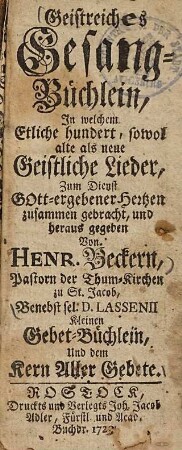 Geistreiches
Gesang-
Büchlein,
In welchem
Etliche hundert, sowol
alte als neue
Geistliche Lieder,
Zum Dienst
GOtt-ergebener Hertzen
zusammen gebracht, und
heraus gegeben
Von
HENR. Beckern,
Pastorn der Thum-Kirchen
zu St. Jacob,
Benebst sel. D. LASSENII
Kleinen
Gebet-Büchlein,
Und dem
Kern Aller Gebete.
ROSTOCK,
Druckts und Verlegts Joh. Jacob
Adler, Fürstl. und Acad.
Buchdr.